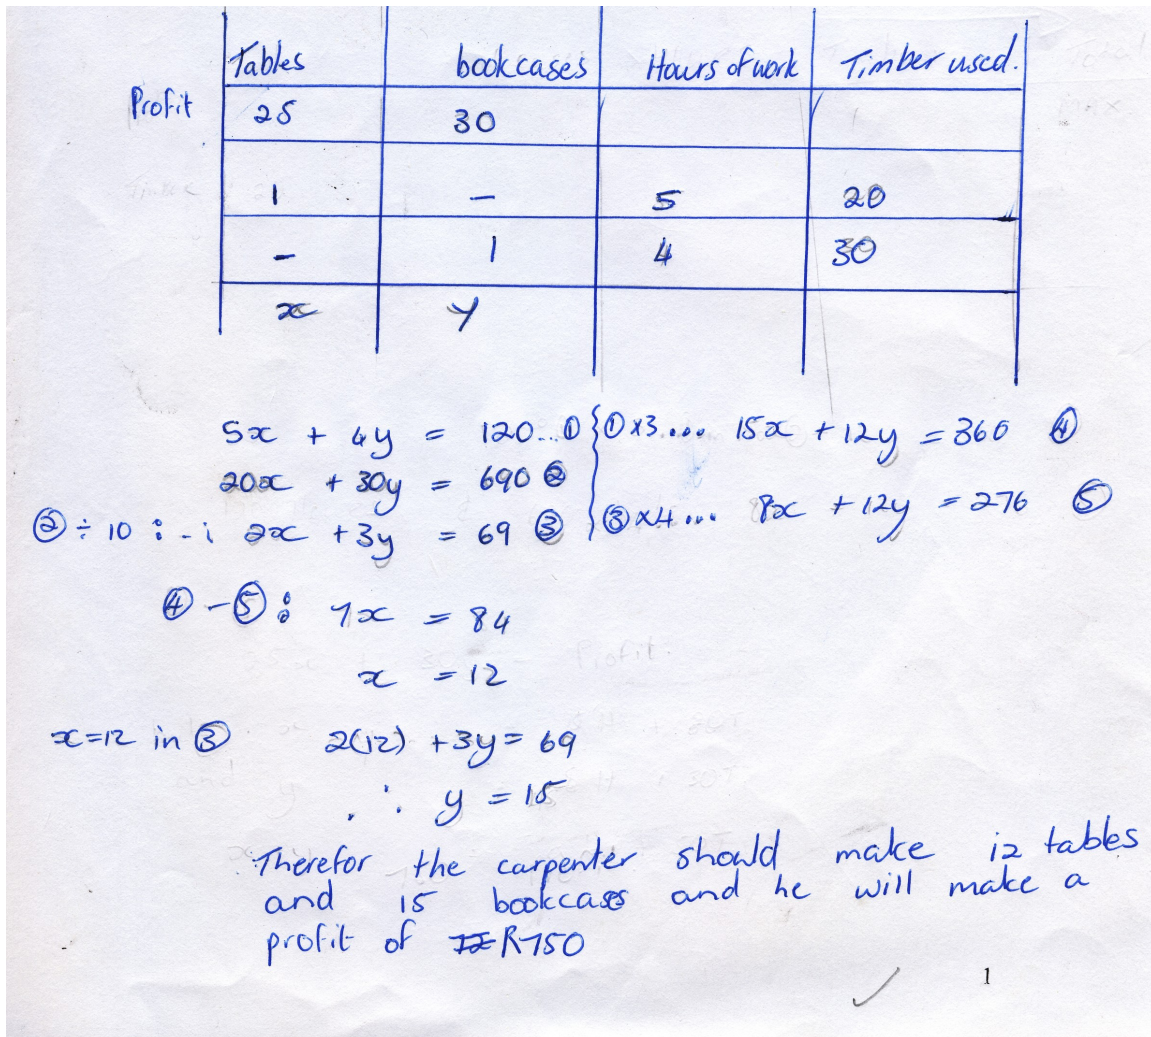 Tables bookcases Hours of work Timber used.
Profit 25 30
1 – 5 20
– 1 4 30
x y
5x + 4y = 120...① ①x3... 15x + 12y = 360 ④
20x + 30y = 690 ②
②÷10 : -i 2x + 3y = 69 ③ ③x4... 8x + 12y = 276 ⑤
④ - ⑤: 7x = 84
x = 12
x=12 in ③ 2(12) + 3y = 69
∴ y = 15
Therefor the carpenter should make 12 tables
and 15 bookcases and he will make a
profit of R750
1